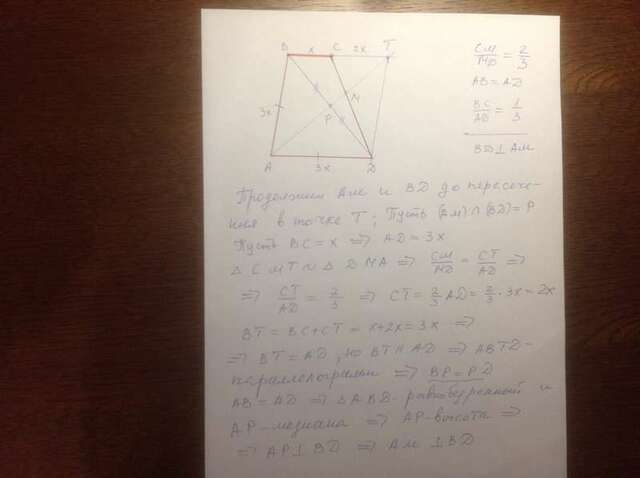 B x C 2x T
M
3x
P
A 3x D
CM/MD = 2/3
AB = AD
BC/AD = 1/3
BD ⊥ AM
Продолжим AM и BD до пересече-
ния в точке T; Пусть (AM) ∩ (BD) = P
Пусть BC = x ⇒ AD = 3x
Δ CMT ~ Δ DMA ⇒ CM/MD = CT/AD ⇒
⇒ CT/AD = 2/3 ⇒ CT = 2/3 AD = 2/3 · 3x = 2x
BT = BC + CT = x + 2x = 3x ⇒
⇒ BT = AD, но BT ∥ AD ⇒ ABTD-
параллелограмм ⇒ BP = PD
AB = AD ⇒ Δ ABD - равнобедренный и
AP - медиана ⇒ AP - высота ⇒
⇒ AP ⊥ BD ⇒ AM ⊥ BD